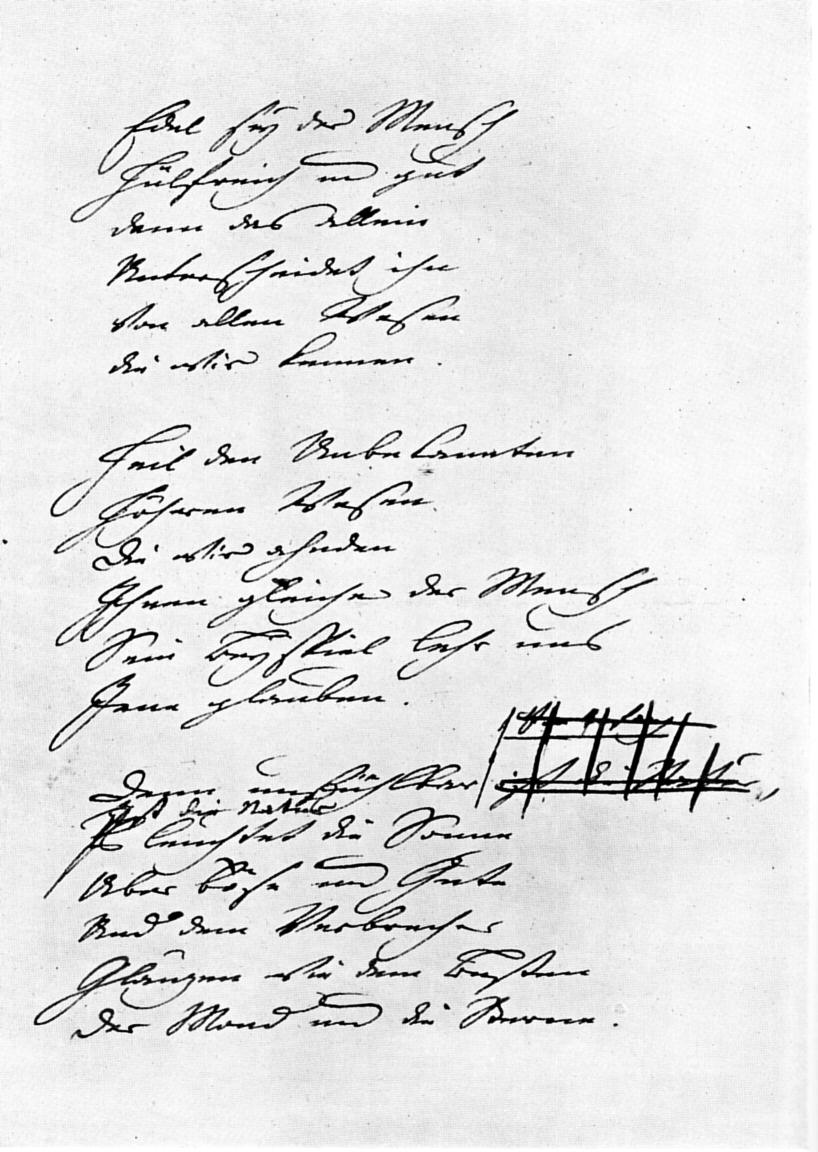 Edel sey der Mensch
Hülfreich und gut
denn das allein
Unterscheidet ihn
von allen Wesen
die wir kennen.
Heil den Unbekannten
Höhren Wesen
Die wir ahnden
Ihnen gleiche der Mensch
Sein Beyspiel lehr uns
Jene glauben.
Denn unfühlbar ist die Natur,
Ist die Natur
Es leuchtet die Sonne
Über böse und Gute
Und dem Verbrecher
Glänzen wie dem Besten
Der Mond und die Sterne.